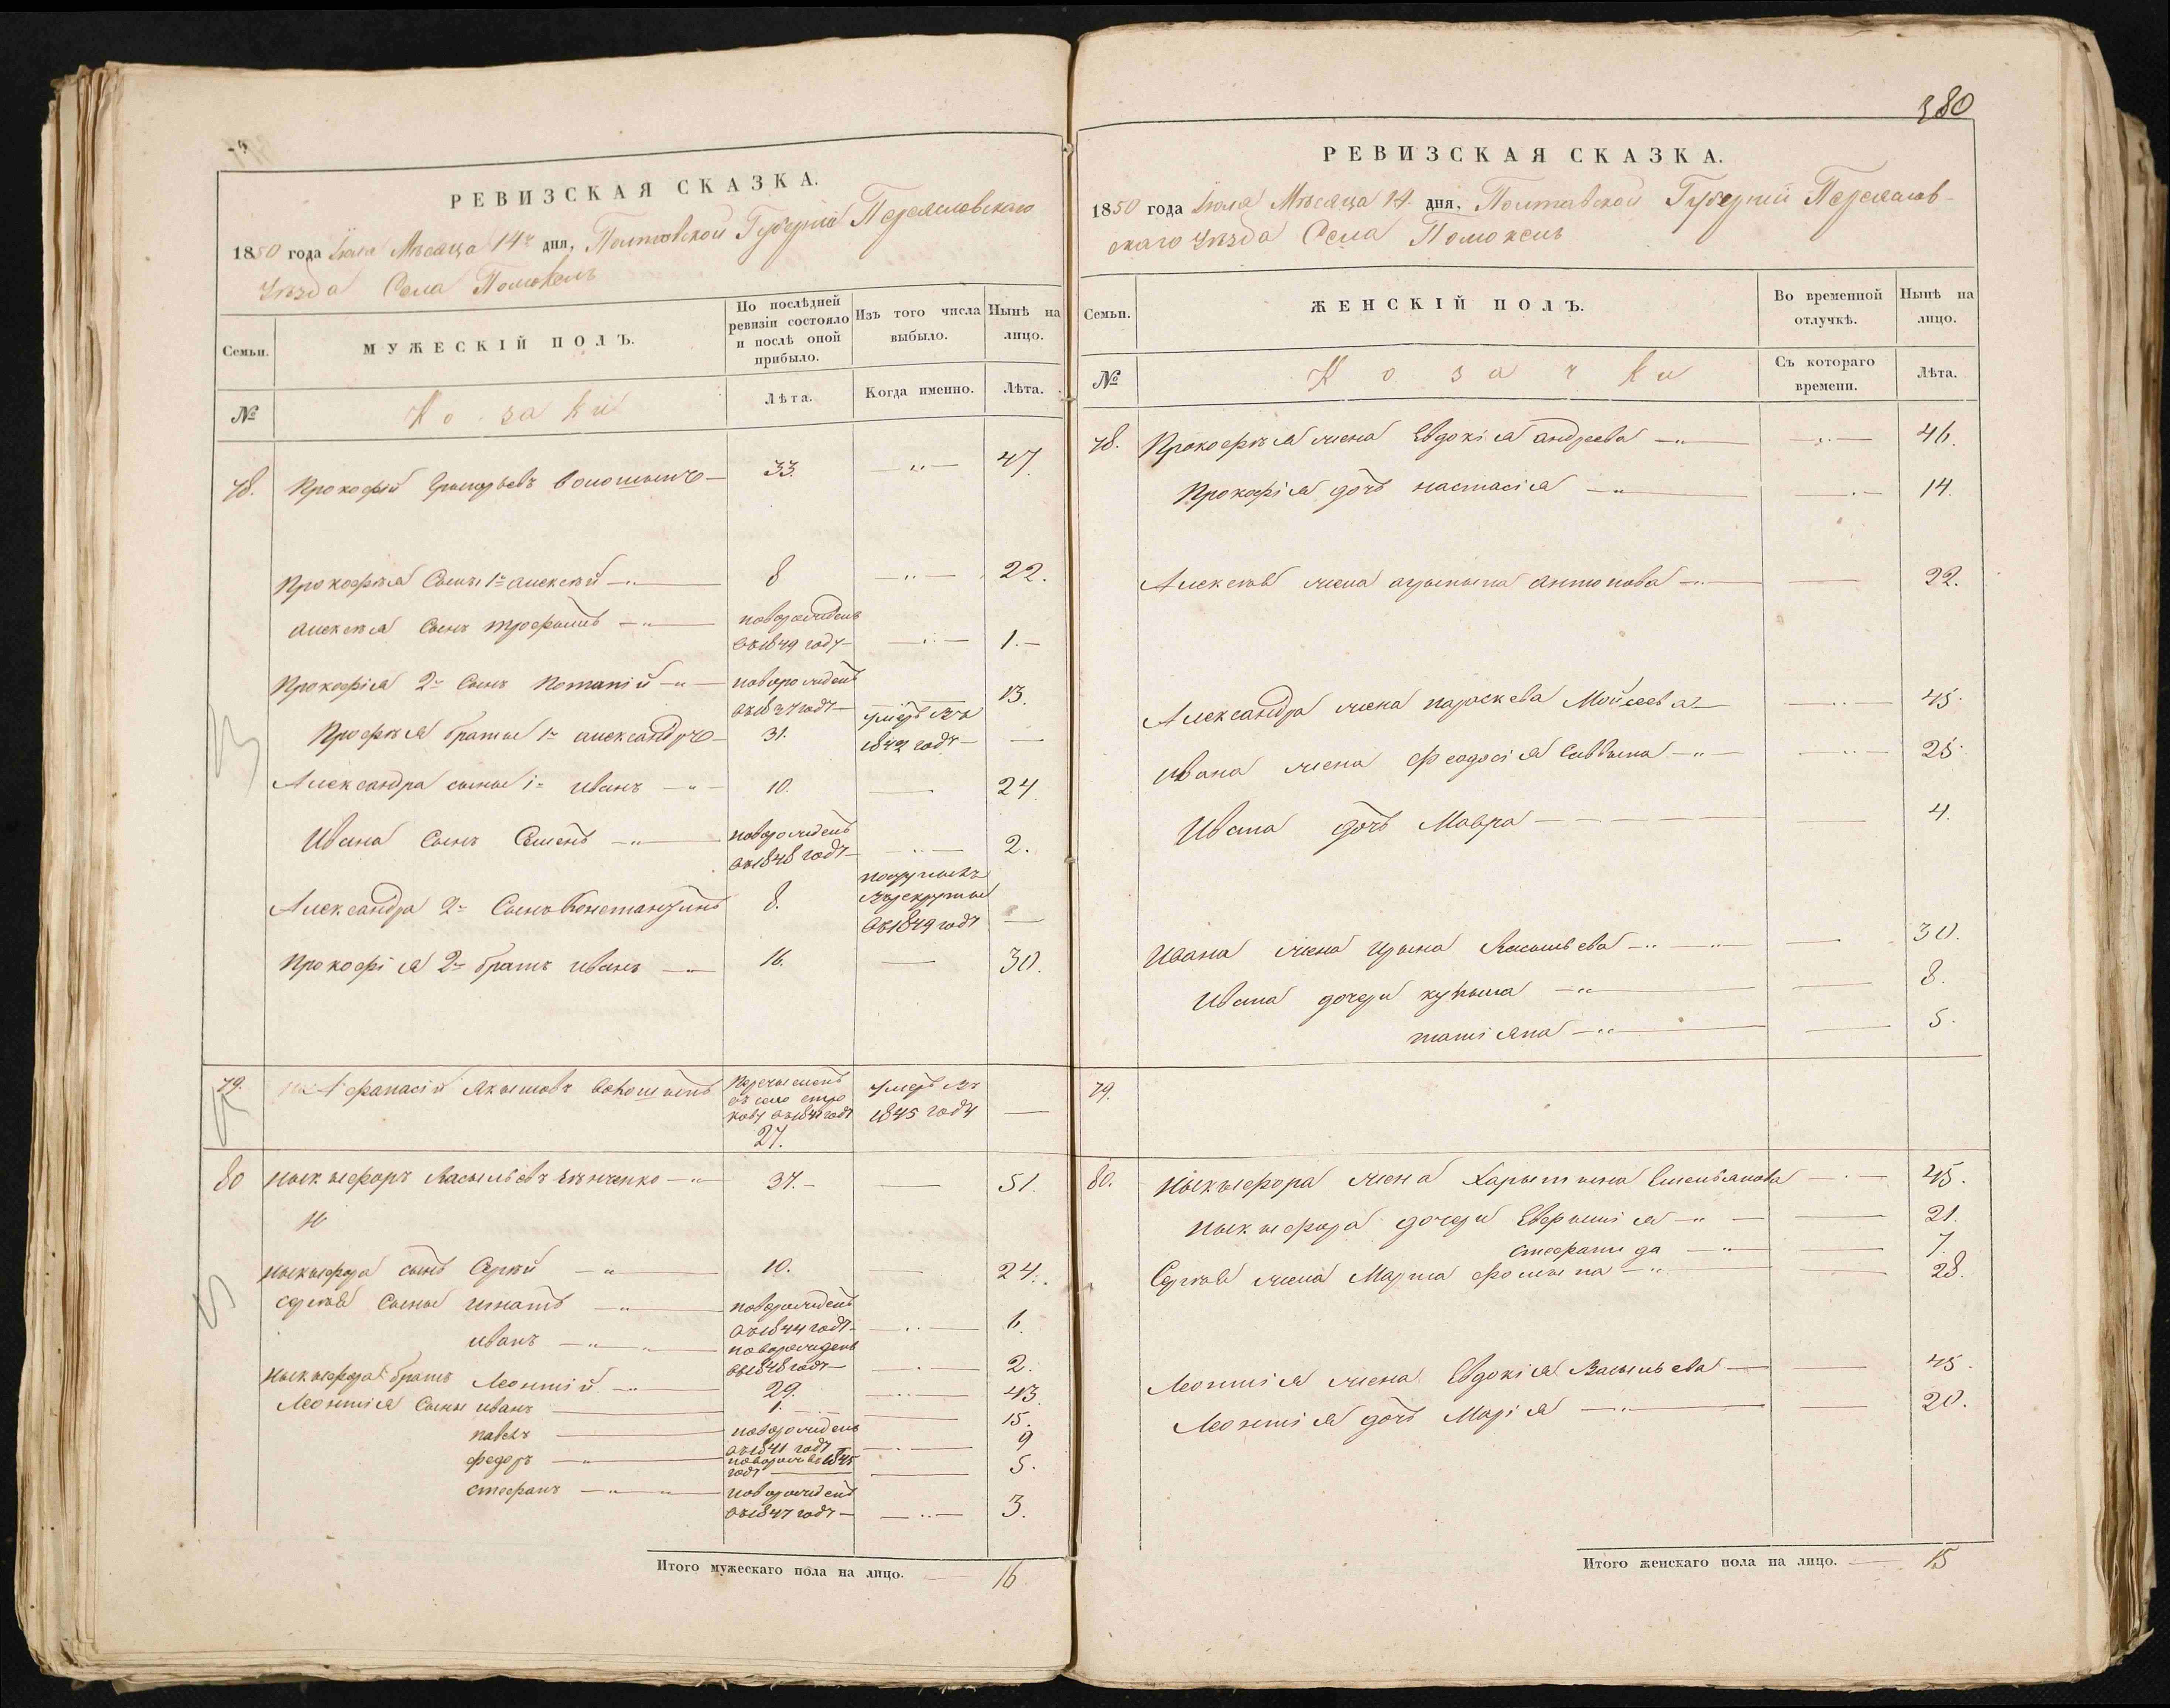 РЕВИЗСКАЯ СКАЗКА.
1850 года Іюля Мѣсяца 14 дня, Полтавской Губерніи Переяславскаго
Уѣзда Села Помоклъ
Семьи.
МУЖЕСКІЙ ПОЛЪ.
По послѣдней ревизіи состояло и послѣ оной прибыло.
Изъ того числа выбыло.
Нынѣ на лицо.
№
Козаки
Лѣта.
Когда именно.
Лѣта.
78. Прокофій Григорьевъ Волошынъ 33. 47
Прокофѣя Сыны 1й алексѣй 8 22.
алексѣя Сынъ трофымъ новорожденъ
въ 1849 году 1.
Прокофія 2й Сынъ Потапій новорожденъ
въ 1837 году 13.
Профѣя братье 1й александръ 31. умеръ въ
1842 году
Александра сыны 1й иванъ 10. 24.
Ивана Сынъ Семенъ новорожденъ
въ 1848 году 2.
Александра 2й Сынъ Константинъ 8. поступилъ
въ рекруты
въ 1849 году
Прокофія 2й братъ иванъ 16. 30.
79. Афанасій Якымовъ Волошынъ Перечисленъ
въ 1842 году умеръ въ
1845 году
27.
80 Ныкыфоръ Васыльевъ 37. 51.
Н
Ныкыфора сынъ Сергѣй 10. 24.
Сергѣя Сыны игнатъ новорожденъ
въ 1844 году 6.
иванъ новорожденъ
въ 1848 году 2.
Ныкыфора братъ Леонтій 29. 43.
Леонтія Сыны иванъ 1. 15.
павелъ новорожденъ
въ 1841 году 9
федоръ новорож въ 1845
году 5.
стефанъ новорожденъ
въ 1847 году 3.
Итого мужескаго пола на лицо. 16
380
РЕВИЗСКАЯ СКАЗКА.
1850 года Іюля Мѣсяца 14 дня, Полтавской Губерніи Переяслов-
скаго Уѣзда Села Помоклъ
Семьи.
ЖЕНСКІЙ ПОЛЪ.
Во временной отлучкѣ.
Нынѣ на лицо.
№
Козачки
Съ котораго времени.
Лѣта.
78. Прокофѣя жена Евдокія андреева 46.
Прокофія дочь настасія 14.
Алексѣя жена антонова 22.
Александра жена параскева Мойсеева 45.
ивана жена феодосія Саввына 25.
Ивана дочь Мавра 4.
Ивана жена Ирына Васыльева 30.
Ивана дочери 8.
татіяна 5.
79.
80. Ныкыфора жена Харытына Емельянова 45.
Ныкыфора дочери Евфымія 21.
стефанида 7.
Сергѣя жена Марта фомына 28.
Леонтія жена Евдокія Васыльева 45.
Леонтія дочь Марія 20.
Итого женскаго пола на лицо. 15